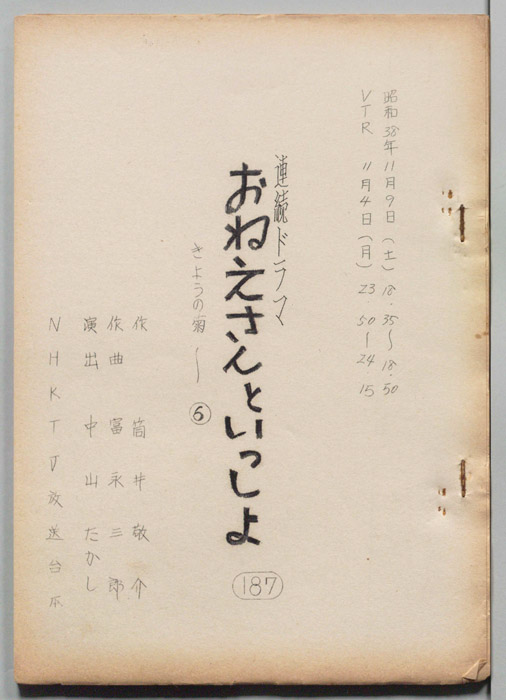 昭和38年11月9日(土)18.35〜18.50
VTR 11月4日(月)23 50〜24 15
連続ドラマ
おねえさんといっしょ
187
きようの菊〜
⑥
作 筒井敬介
作曲 冨永三郎
演出 中山たかし
NHKTV放送台本